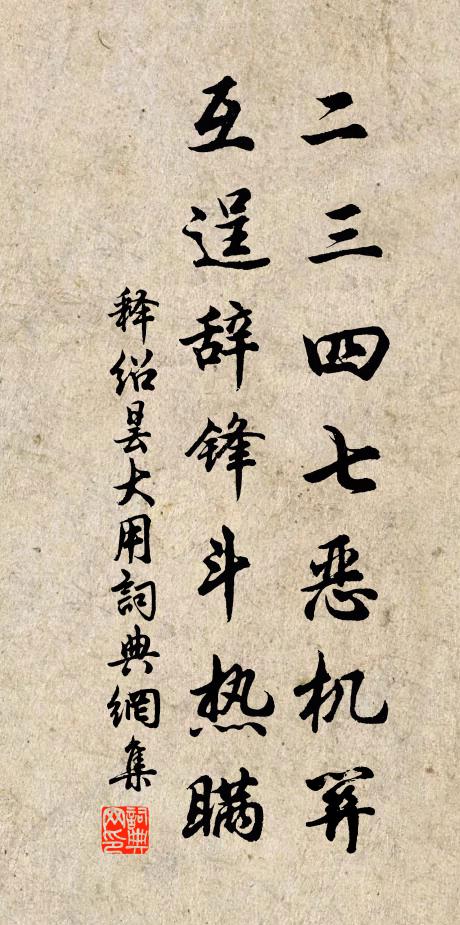 二三四七恶机筭
互逞辞锋斗热瞒
释绍昙大用詞典網集
詞典网印